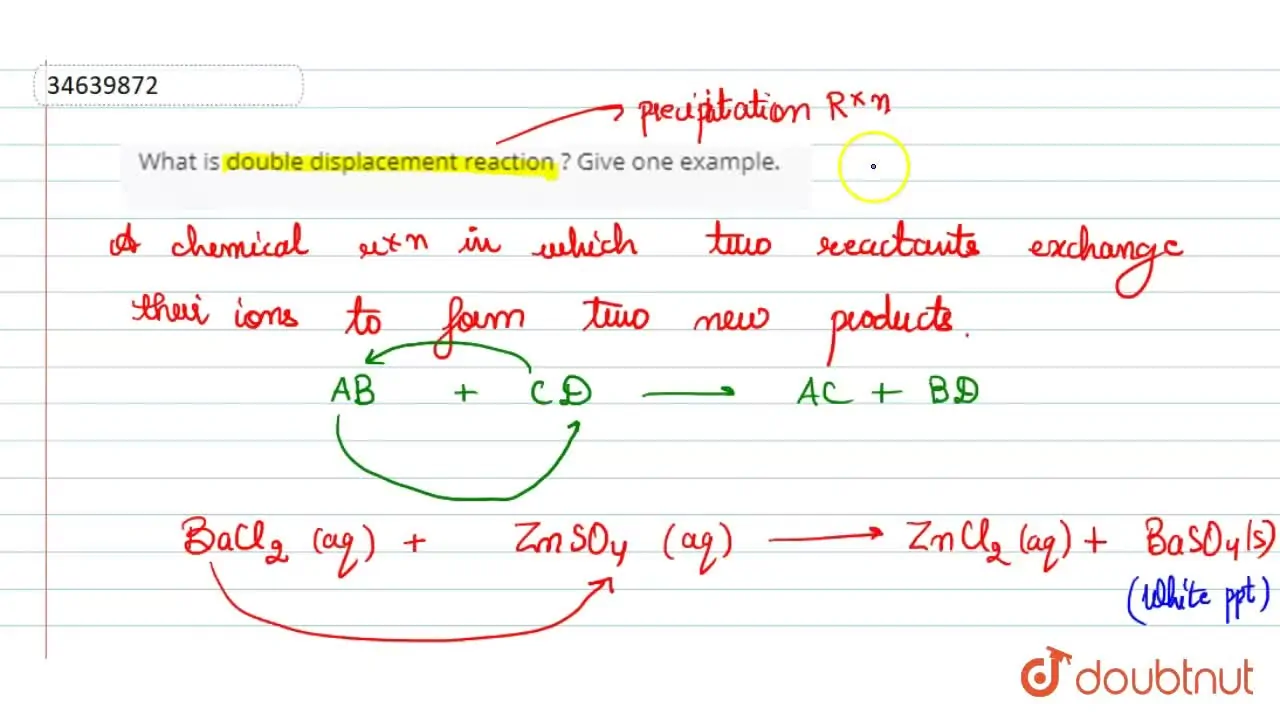 34639872
precipitation Rxn
What is double displacement reaction ? Give one example.
A chemical rxn in which two reactants exchange
their ions to form two new products.
AB + CD → AC + BD
BaCl₂ (aq) + ZnSO₄ (aq) → ZnCl₂ (aq) + BaSO₄(s)
(White ppt)
doubtnut